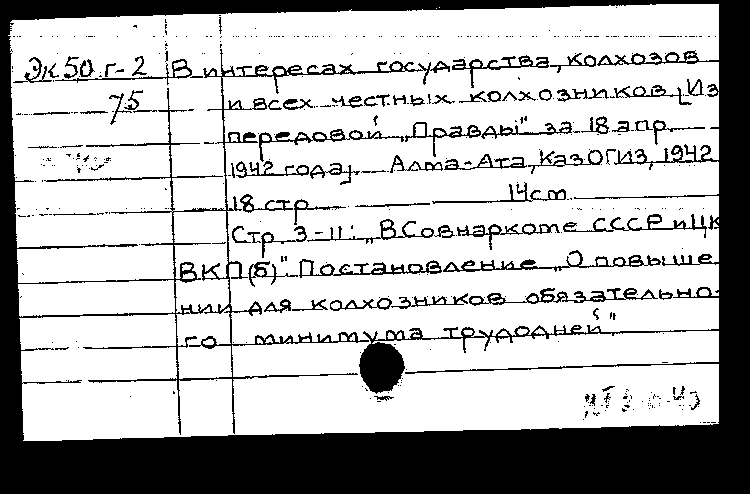 Эк 50.г-2 В интересах государства, колхозов
75 и всех честных колхозников. [Из
передовой „Правды" за 18 апр.
1942 года]. Алма-Ата, КазОГИЗ, 1942
18 стр. 14 см
Стр. 3-11: „В Совнаркоме СССР и ЦК
ВКП(б)". Постановление „О повыше
нии для колхозников обязательно-
го минимума трудодней".